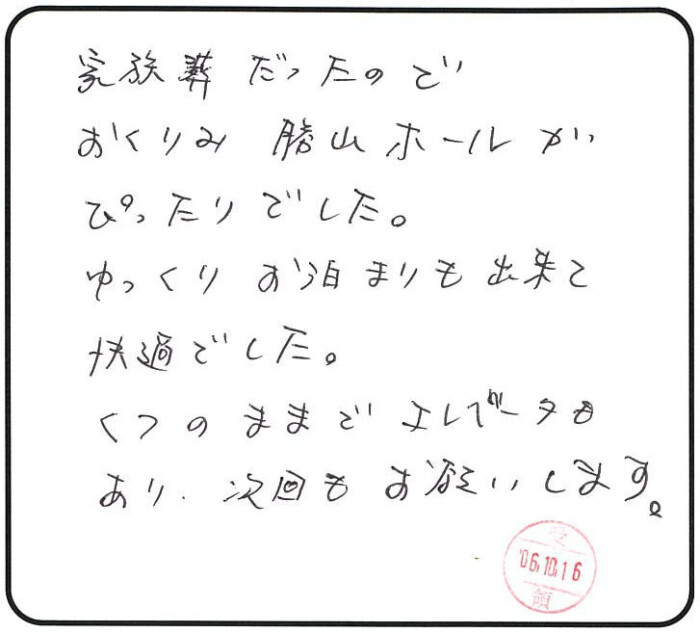 家族葬だったので
おくりみ 勝山ホールが
ぴったりでした。
ゆっくり お泊まりも出来て
快過でした。
くつのままで エレベータも
あり、次回もお願いします。
受
'06.10.16
領